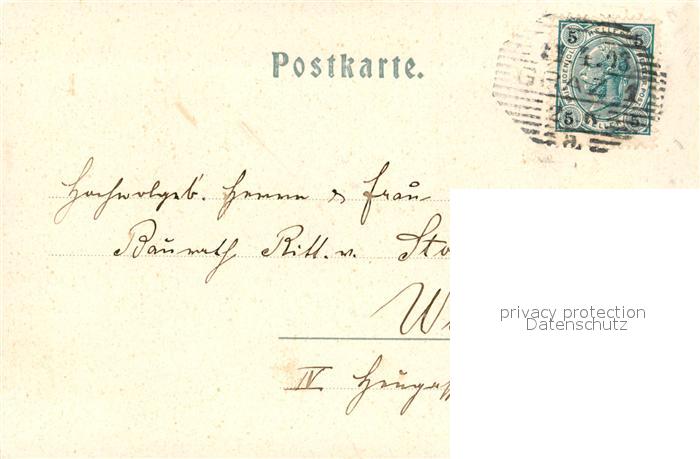 Postkarte.
5 5
GRAZ
5 5
Hochwolgeb. Herrn & Frau
Baurath Ritt. v. Sto
Wi
IV. Heugass
privacy protection
Datenschutz